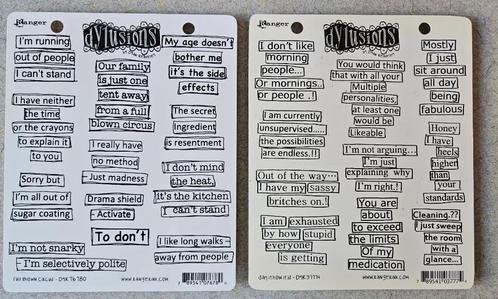 Ranger
Dylusions
I'm running
out of people
I can't stand
I have neither
the time
or the crayons
to explain it
to you
Sorry but
I'm all out of
sugar coating
I'm not snarky
– I'm selectively polite
Our family
is just one
tent away
from a full
blown circus
I really have
no method
– Just madness
Drama shield
– Activate
To don't
My age doesn't
bother me
it's the side
effects
The secret
Ingredient
is resentment
I don't mind
the heat,
It's the kitchen
I can't stand
I like long walks –
away from people
WWW.RANGERINK.COM
Ranger
Dylusions
I don't like
morning
people...
Or mornings..
or people .!
I am currently
unsupervised.....
the possibilities
are endless.!!
Out of the way...
I have my sassy
britches on.!
I am exhausted
by how stupid
everyone
is getting
You would think
that with all your
Multiple
personalities,
at least one
would be
Likeable
I'm not arguing...
I'm just
explaining why
I'm right.!
You are
about
to exceed
the limits
Of my
medication
Mostly
I just
sit around
all day
being
fabulous
Honey
I have
heels
higher
than
your
standards
Cleaning.??
I just sweep
the room
with a
glance...
WWW.RANGERINK.COM